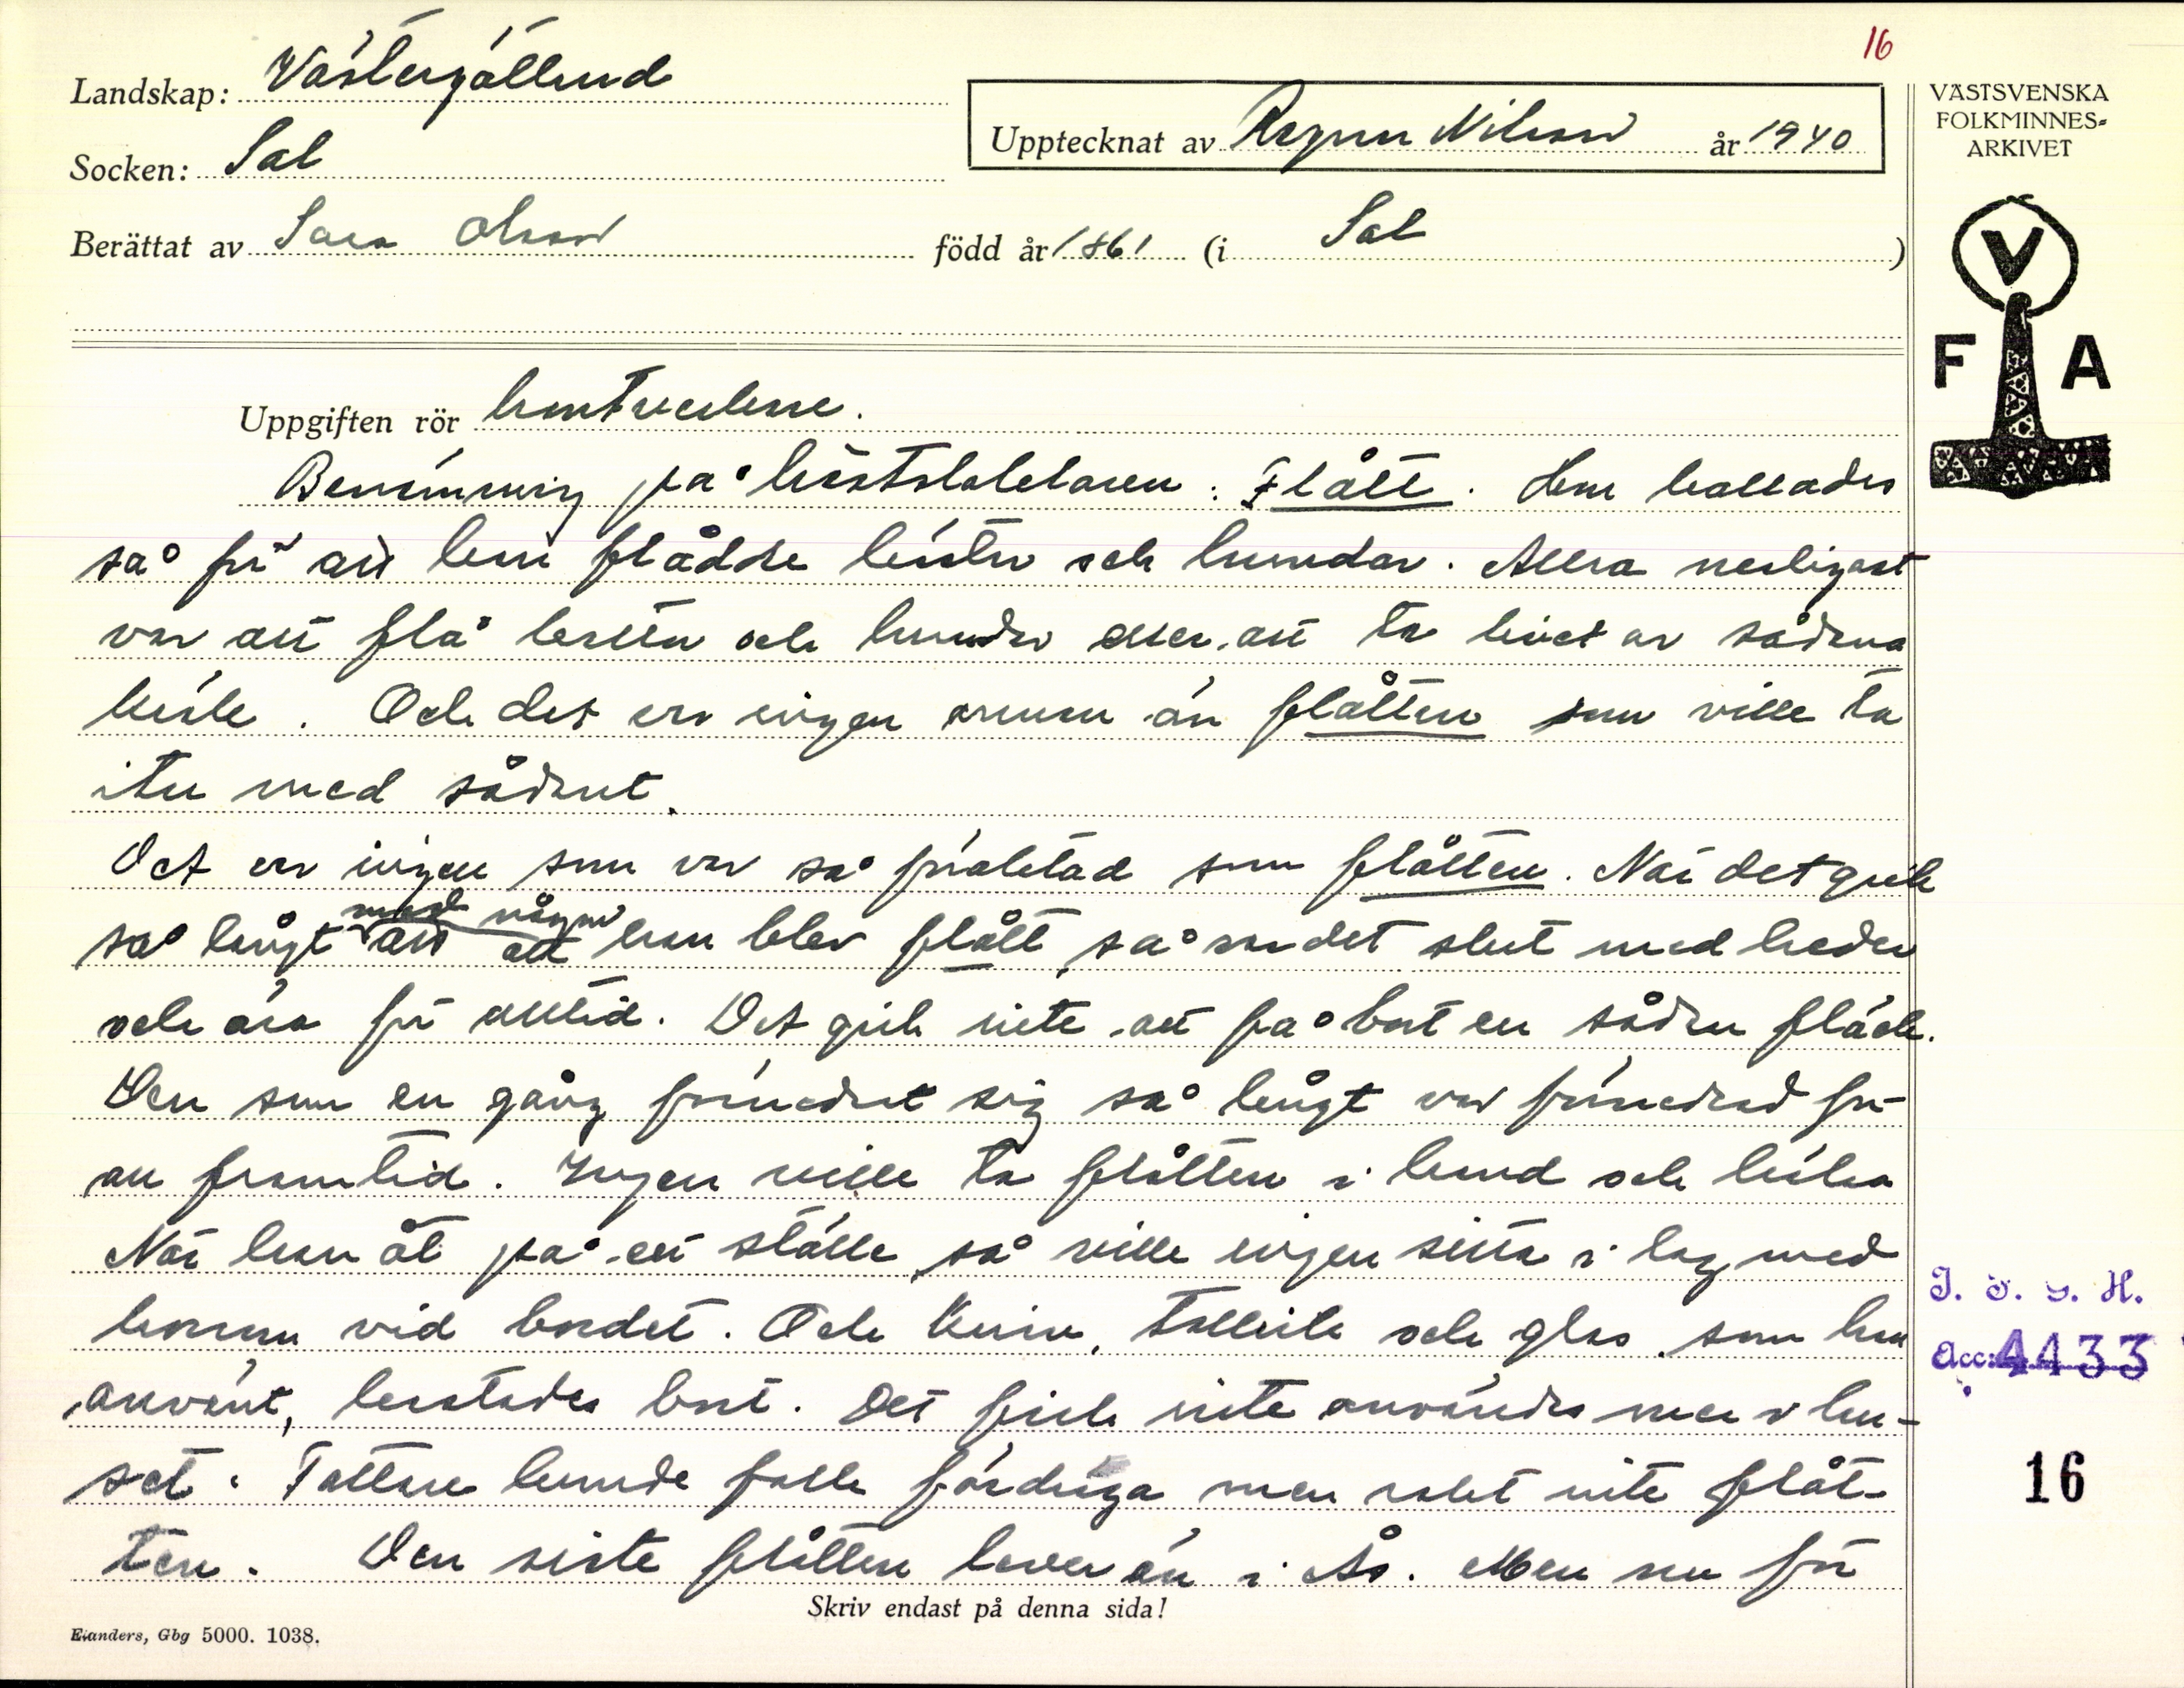 16
Landskap: Västergötland
Socken: Sal
Upptecknat av Ragnar Nilsson år 1940
Berättat av Sara Olsson född år 1861 (i Sal )
VÄSTSVENSKA
FOLKMINNES-
ARKIVET
V
F A
Uppgiften rör hantverkare.
Benämning på hästslaktaren: Flått. Han kallades
så för att han flådde hästar och hundar. Allra nesligast
var att flå hästar och hundar eller att ta livet av sådana
husle. Och det var ingen annan än flåtten som ville ta
itu med sådant.
Det var ingen som var så föraktad som flåtten. När det gick
så långt med någon att han blev flått, så var det slut med heder
och ära för alltid. Det gick inte att få bort en sådan fläck.
Den som en gång förnedrat sig så långt var förnedrad för
all framtid. Ingen ville ta flåtten i hand och hälsa
När han åt på ett ställe, så ville ingen sitta i lag med
honom vid bordet. Och kniv, tallrik och glas, som han
använt, kastades bort. Det fick inte användas mer i hu-
set. Tattare kunde folk fördraga men rakt inte flåt-
ten. Den siste flåtten lever än i Ås. Men nu för
Skriv endast på denna sida!
Elanders, Gbg 5000. 1038.
I. O. G. H.
Acc: 4433
16